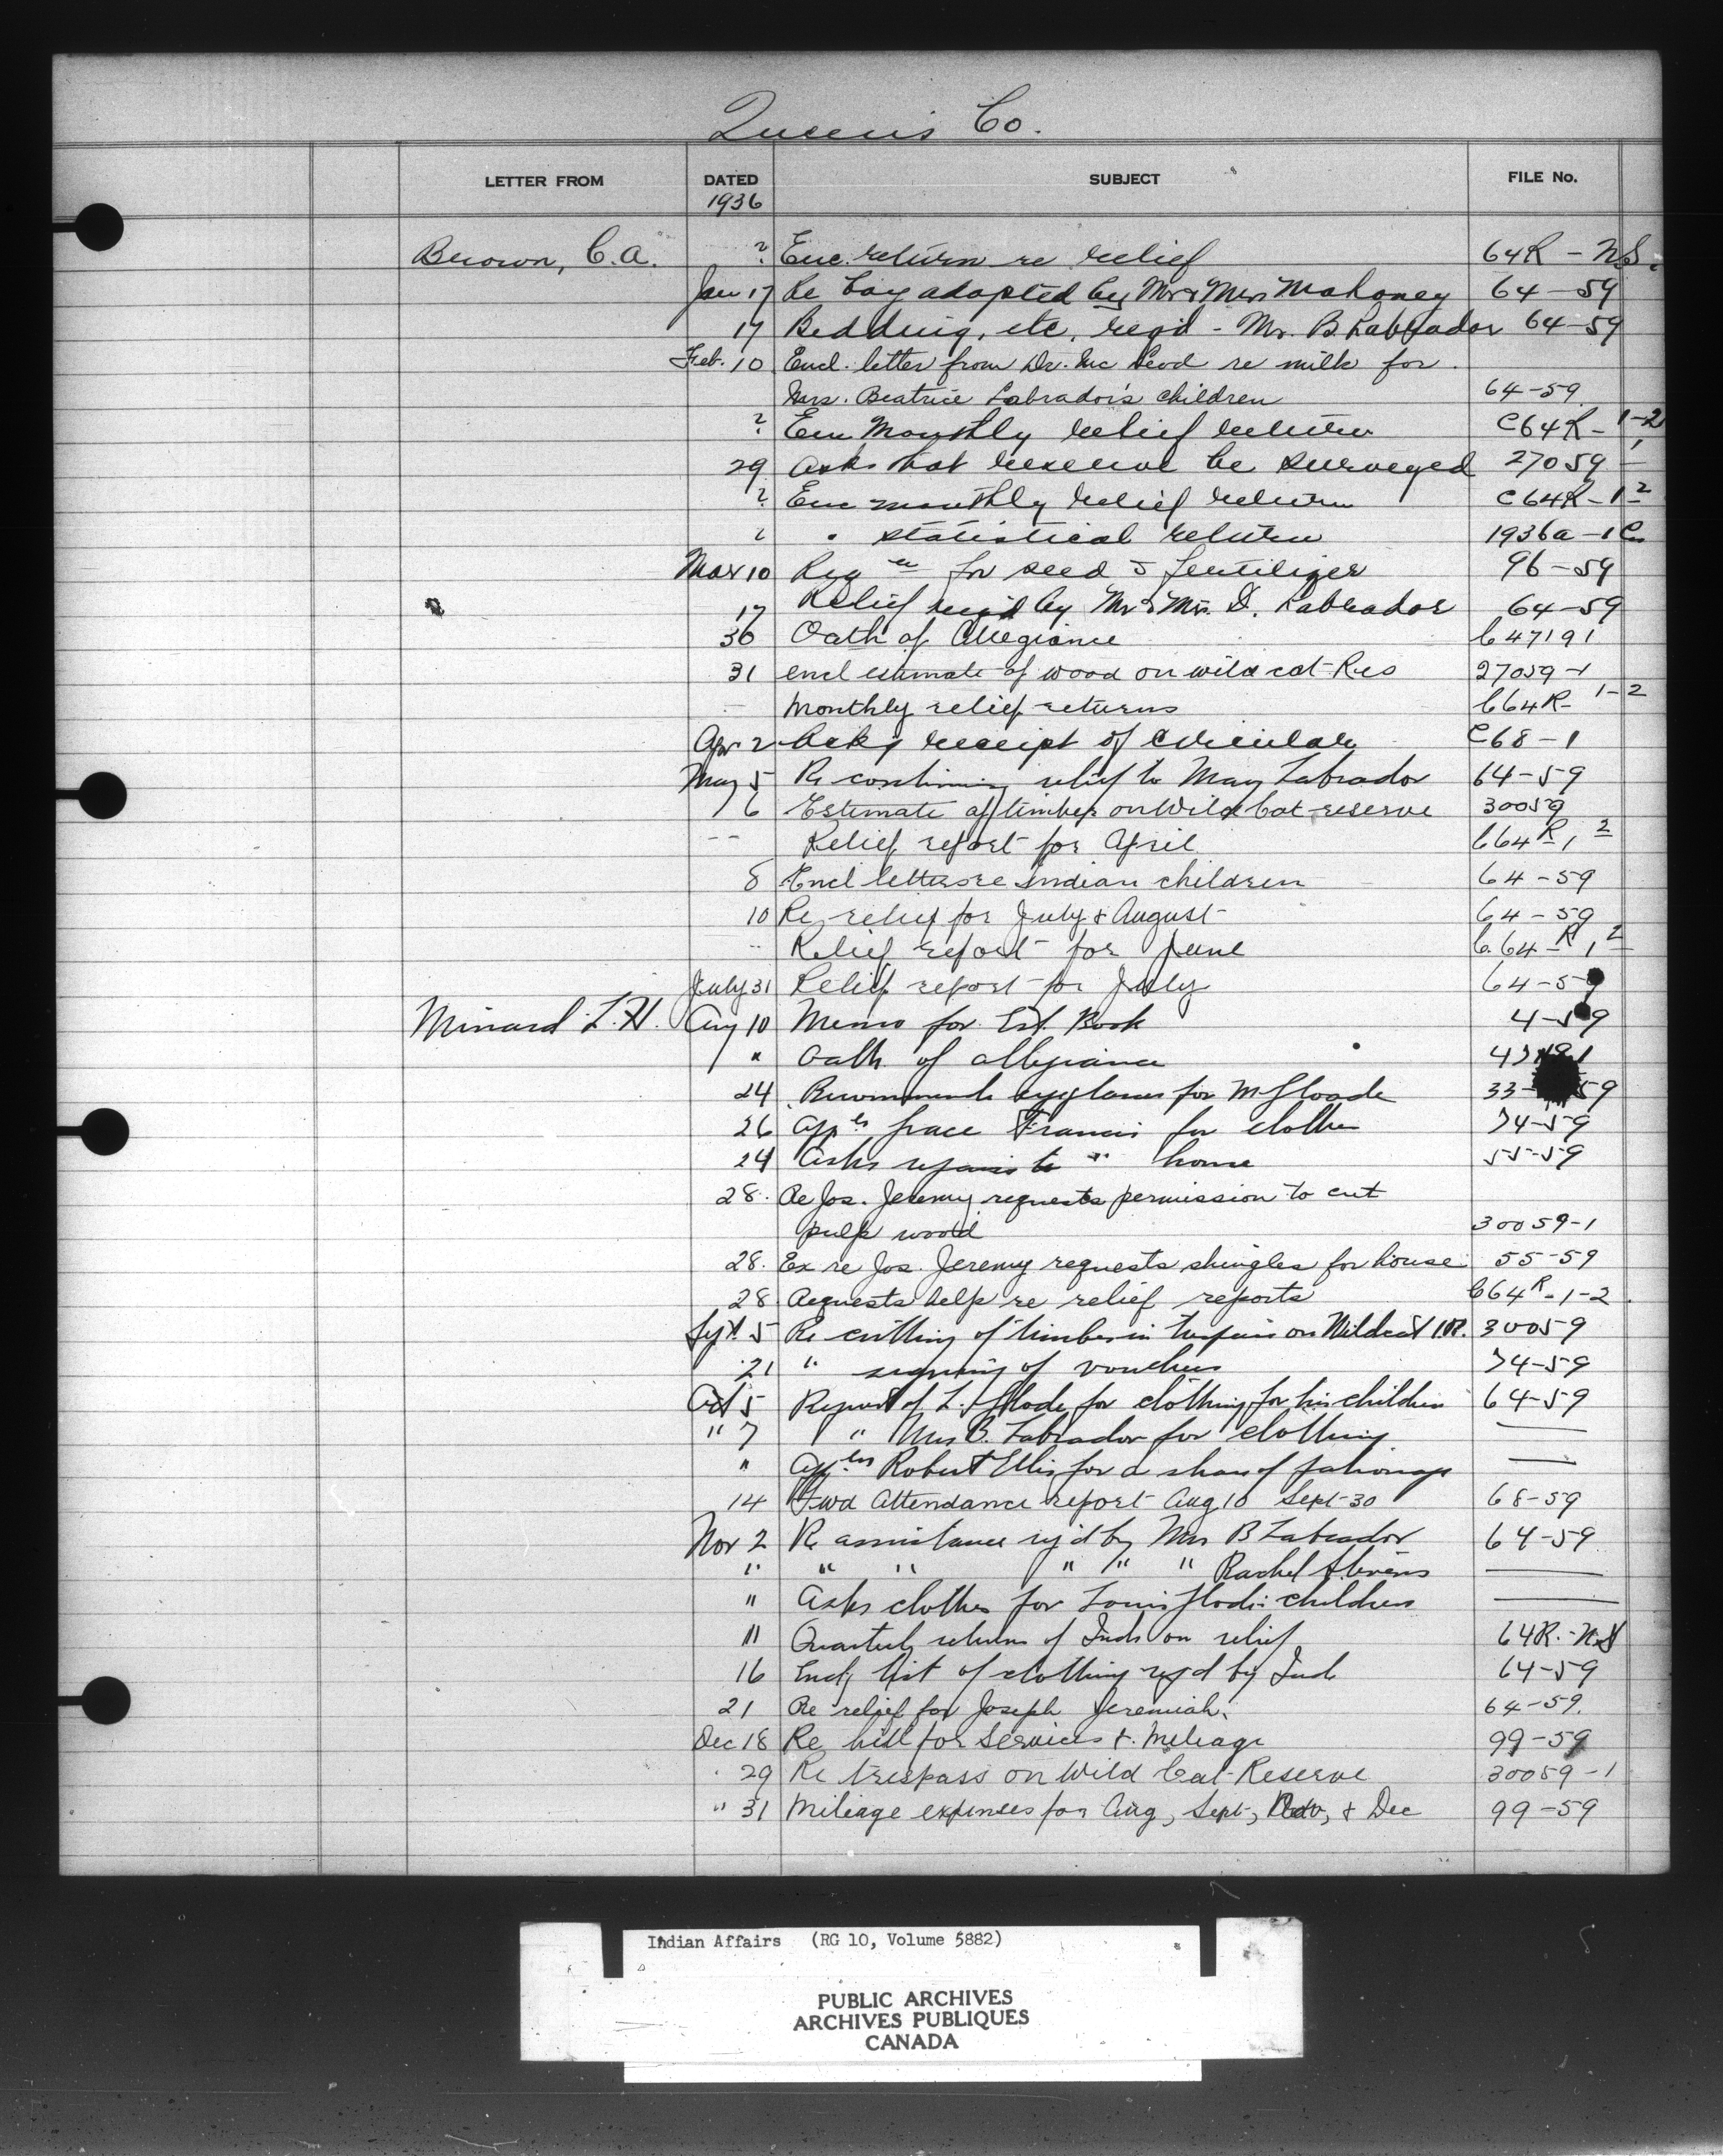 Queen's Co.
LETTER FROM DATED SUBJECT FILE No.
1936
Brown, C.A. ? Enc. return re relief 64R - N.S.
Jan 17 Re boy adopted by Mr & Mrs Mahoney 64-59
17 Bedding, etc, reqd - Mr. B. Labrador 64-59
Feb. 10 Encl. letter from Dr. McLeod re milk for
Mrs. Beatrice Labrador's children 64-59
? Enc Monthly relief return C64R-1-2
29 Asks that reserve be surveyed 27059-1
? Enc monthly relief return C64R-1-2
? " statistical return 1936a-1
Mar 10 Reqn for seed & fertilizer 96-59
17 Relief req'd by Mr & Mrs. D. Labrador 64-59
30 Oath of Allegiance C47191
31 encl estimate of wood on wild cat Res 27059-1
Monthly relief returns C64R-1-2
Apr 2 Ackg receipt of circular C68-1
May 5 Re continuing relief to Mary Labrador 64-59
6 Estimate of timber on Wild Cat reserve 30059
-- Relief report for April C64R-1-2
8 Encl letters re Indian children 64-59
10 Re relief for July & August 64-59
-- Relief report for June C.64-R 1-2
July 31 Relief report for July 64-59
Minard L.H. Aug 10 Memo for Est. Book 4-59
" Oath of allegiance 47191
24 Recommends eyeglasses for M Gloade 33-59
26 Appln Grace Francis for clothes 74-59
24 Asks repairs to " home 55-59
28. Re Jos. Jeremy requests permission to cut
pulp wood 30059-1
28. Ex re Jos. Jeremy requests shingles for house 55-59
28. Requests help re relief reports C64R-1-2.
Sept. 5 Re cutting of timber in trespass on Wildcat I.R. 30059
21 " signing of vouchers 74-59
Oct 5 Request of L. Glode for clothing for his children 64-59
" 7 " Mrs B. Labrador for clothing ——
" Appln Robert Ellis for a share of patronage ——
14 Fwd Attendance report Aug 10 Sept 30 68-59
Nov 2 Re assistance req'd by Mrs B Labrador 64-59
" " " " " " Rachel Stevens ——
" Asks clothes for Louis Glode's children ——
" Quarterly return of Inds on relief 64R.-N.S
16 Encl list of clothing req'd by Inds 64-59
21 Re relief for Joseph Jeremiah. 64-59.
Dec 18 Re bill for Services & Mileage 99-59
29 Re trespass on Wild Cat Reserve 30059-1
" 31 Mileage expenses for Aug, Sept, Nov, & Dec 99-59
Indian Affairs (RG 10, Volume 5882)
PUBLIC ARCHIVES
ARCHIVES PUBLIQUES
CANADA